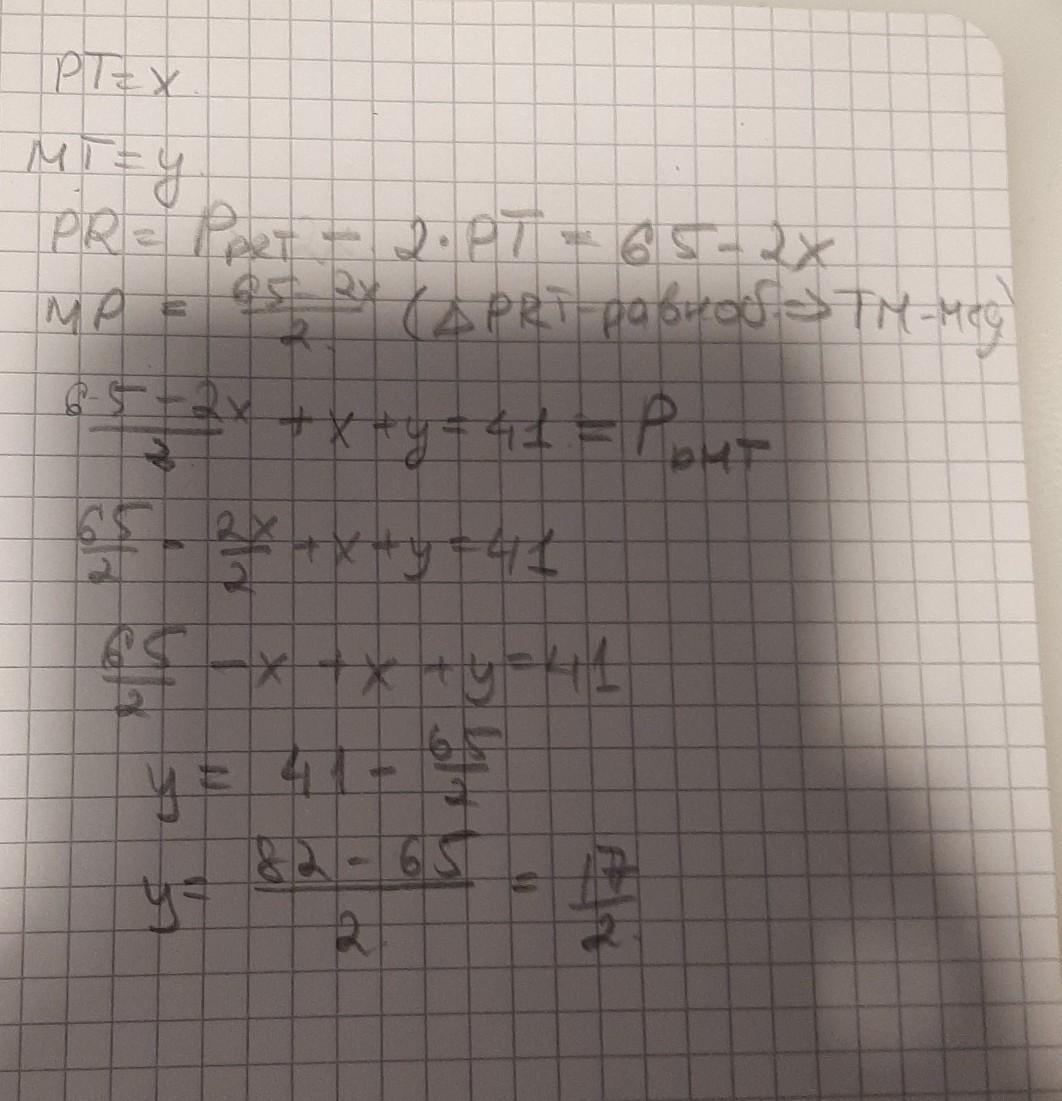 PT = x.
MT = y.
PR = P_PRT - 2·PT = 65 - 2x
MP = (65 - 2x)/2 (△PRT - равноб. ⇒ TM - мед)
(65 - 2x)/2 + x + y = 41 = P_PMT
65/2 - 2x/2 + x + y = 41
65/2 - x + x + y = 41
y = 41 - 65/2
y = (82 - 65)/2 = 17/2